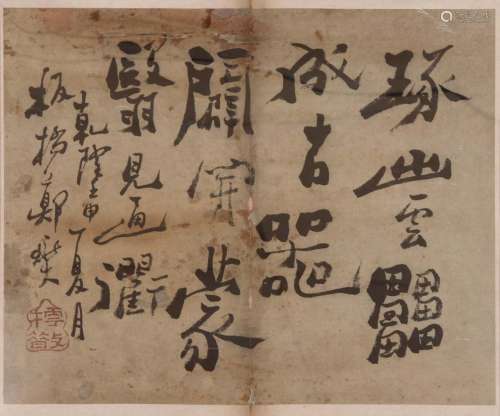 琢出雲畾
成古器
闢開蒙
翳見通衢
乾隆壬申夏月
板橋鄭燮